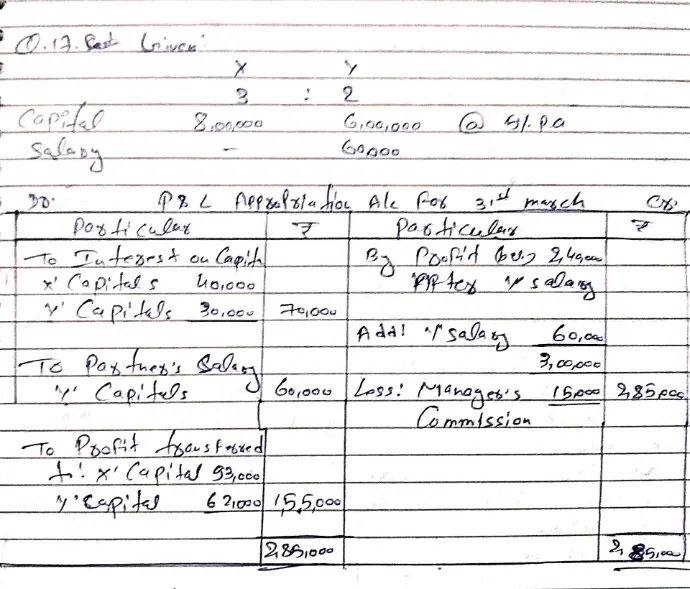 Q.17. Given:
X Y
3 : 2
Capital 8,00,000 6,00,000 @ 5%. P.a
Salary - 60000
Dr. P & L Appropriation A/c For 31st march Cr.
Particular ₹ Particular ₹
To Interest on Capit By Profit 2,40,000
X' Capitals 40,000 After Y salary
Y' Capitals 30,000 70,000
Add: Y salary 60,000
To Partner's Salary 3,00,000
Y' Capitals 60,000 Less: Manager's 15,000 2,85,000
Commission
To Profit transferred
to: X' Capital 93,000
Y' Capital 62,000 1,55,000
2,85,000 2,85,000